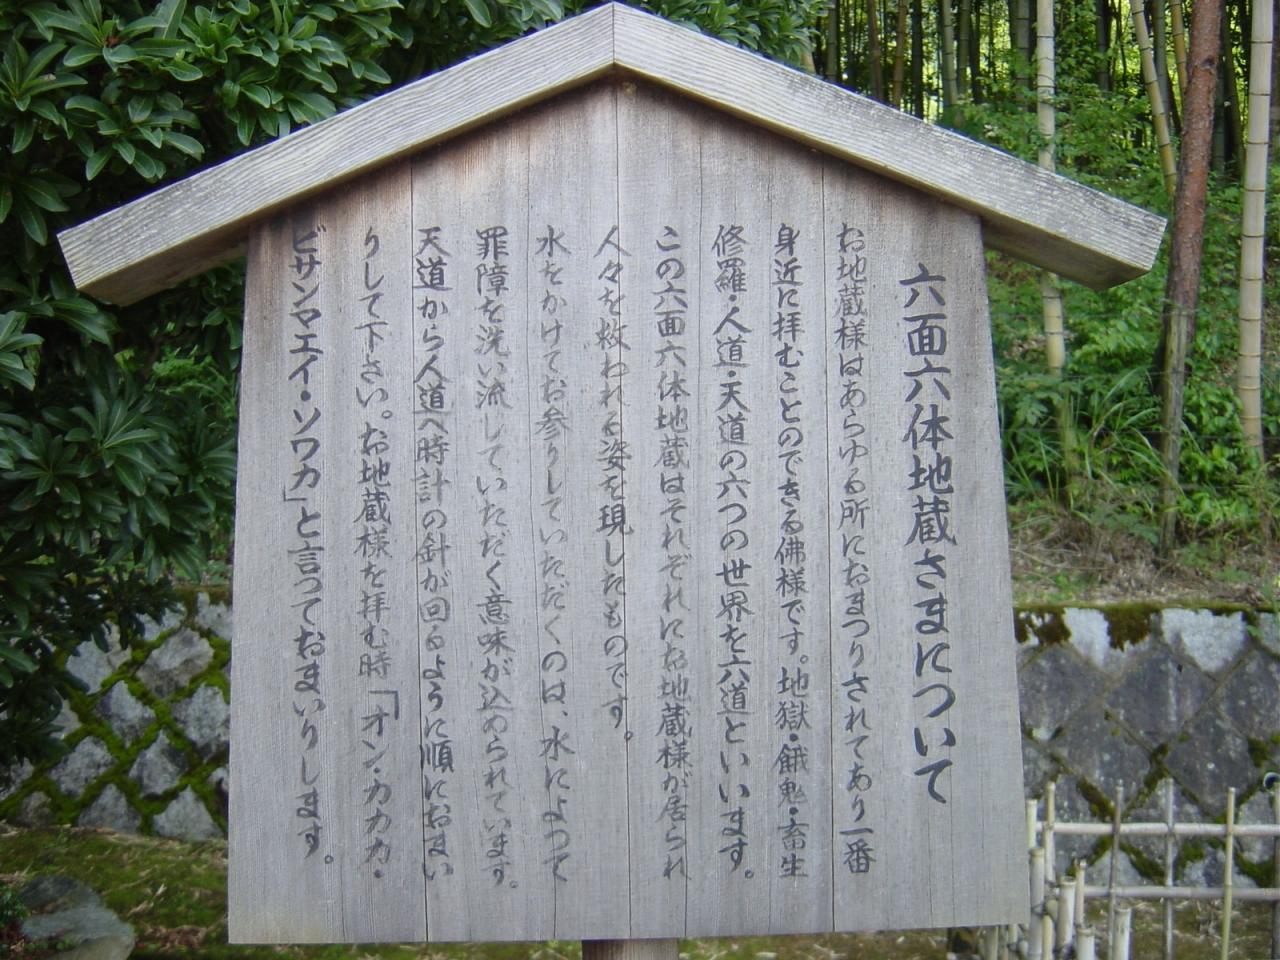 六面六体地蔵さまについて
お地蔵様はあらゆる所におまつりされてあり一番
身近に拝むことのできる佛様です。地獄・餓鬼・畜生
修羅・人道・天道の六つの世界を六道といいます。
この六面六体地蔵はそれぞれにお地蔵様が居られ
人々を救われる姿を現したものです。
水をかけてお参りしていただくのは、水によって
罪障を洗い流していただく意味が込められています。
天道から人道へ時計の針が回るように順におまい
りして下さい。お地蔵様を拝む時「オン・カカカ・
ビサンマエイ・ソワカ」と言っておまいりします。